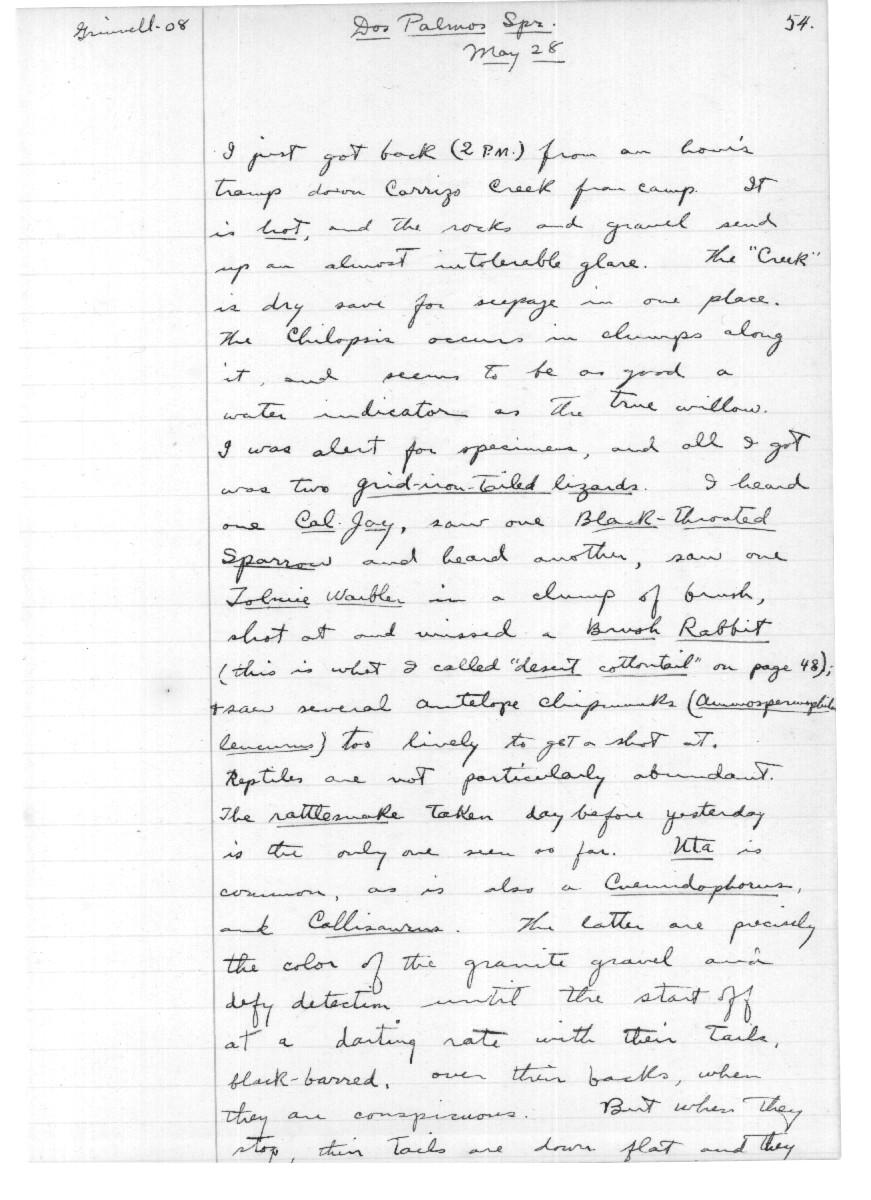 Grinnell-08
Dos Palmos Spr.
54.
May 28
I just got back (2 P.M.) from an hour's
tramp down Carrizo Creek from camp. It
is hot, and the rocks and gravel send
up an almost intolerable glare. The "Creek"
is dry save for seepage in one place.
The Chilopsis occurs in clumps along
it, and seems to be as good a
water indicator as the true willow.
I was alert for specimens, and all I got
was two grid-iron-tailed lizards. I heard
one Cal. Jay, saw one Black-throated
Sparrow and heard another, saw one
Tolmie Warbler in a clump of brush,
shot at and missed a Brush Rabbit
(this is what I called "desert cottontail" on page 48);
+ saw several antelope chipmunks (Ammospermophilus
leucurus) too lively to get a shot at.
Reptiles are not particularly abundant.
The rattlesnake taken day before yesterday
is the only one seen so far. Uta is
common, as is also a Cnemidophorus,
and Callisaurus. The latter are precisely
the color of the granite gravel and
defy detection until the start off
at a darting rate with their tails,
black-barred, over their backs, when
they are conspicuous. But when they
stop, their tails are down flat and they